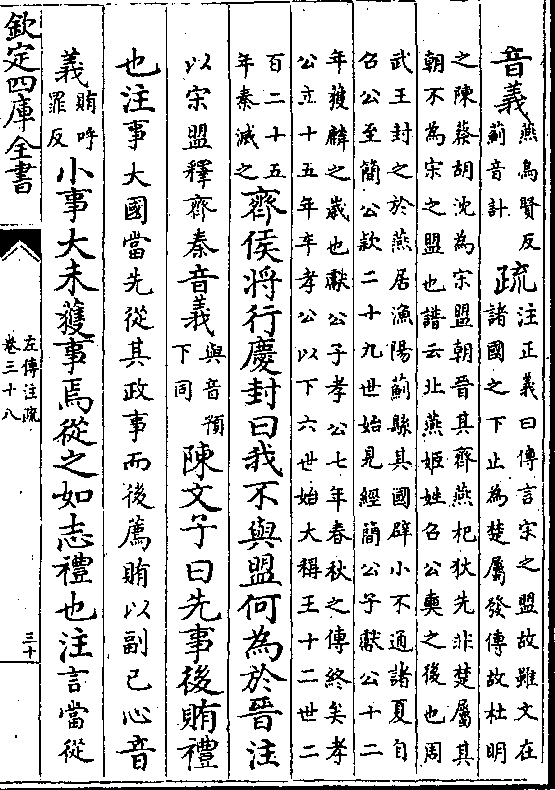 音義燕烏賢反薊音計疏注正義曰傳言宋之盟故雖文在諸國之下止為楚屬發傳故杜明
之陳蔡胡沈為宋盟朝晉其齊燕杞狄先非楚屬其
朝不為宋之盟也譜云北燕姬姓召公奭之後也周
武王封之於燕居漁陽薊縣其國辟小不通諸夏自
召公至簡公欵二十九世始見經簡公子獻公十二
年獲麟之歲也獻公子孝公七年春秋之傳終矣孝
公立十五年卒孝公以下六世始大稱王十二世二
百二十五年秦滅之齊侯將行慶封曰我不與盟何為於晉注
以宋盟釋齊秦音義與音預下同陳文子曰先事後賄禮
也注事大國當先從其政事而後薦賄以副己心音
義賄呼罪反小事大未獲事焉從之如志禮也注言當從
欽定四庫全書
左傳注疏
卷三十八
三十